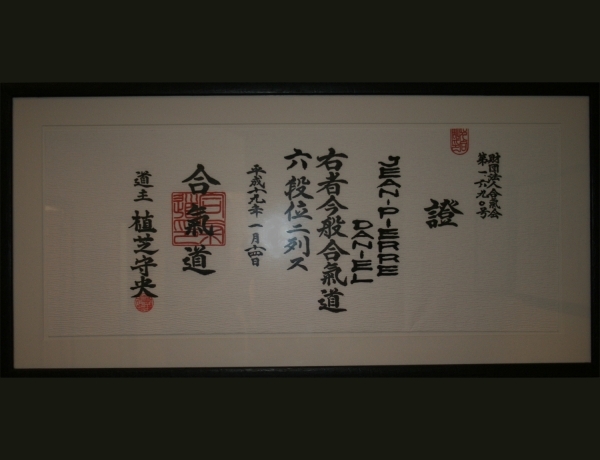 財団法人合氣会
第一六九〇号
證
JEAN-PIERRE
DANIEL
右者今般合氣道
六段位ニ列ス
平成十九年一月十四日
合氣道
道主 植芝守央